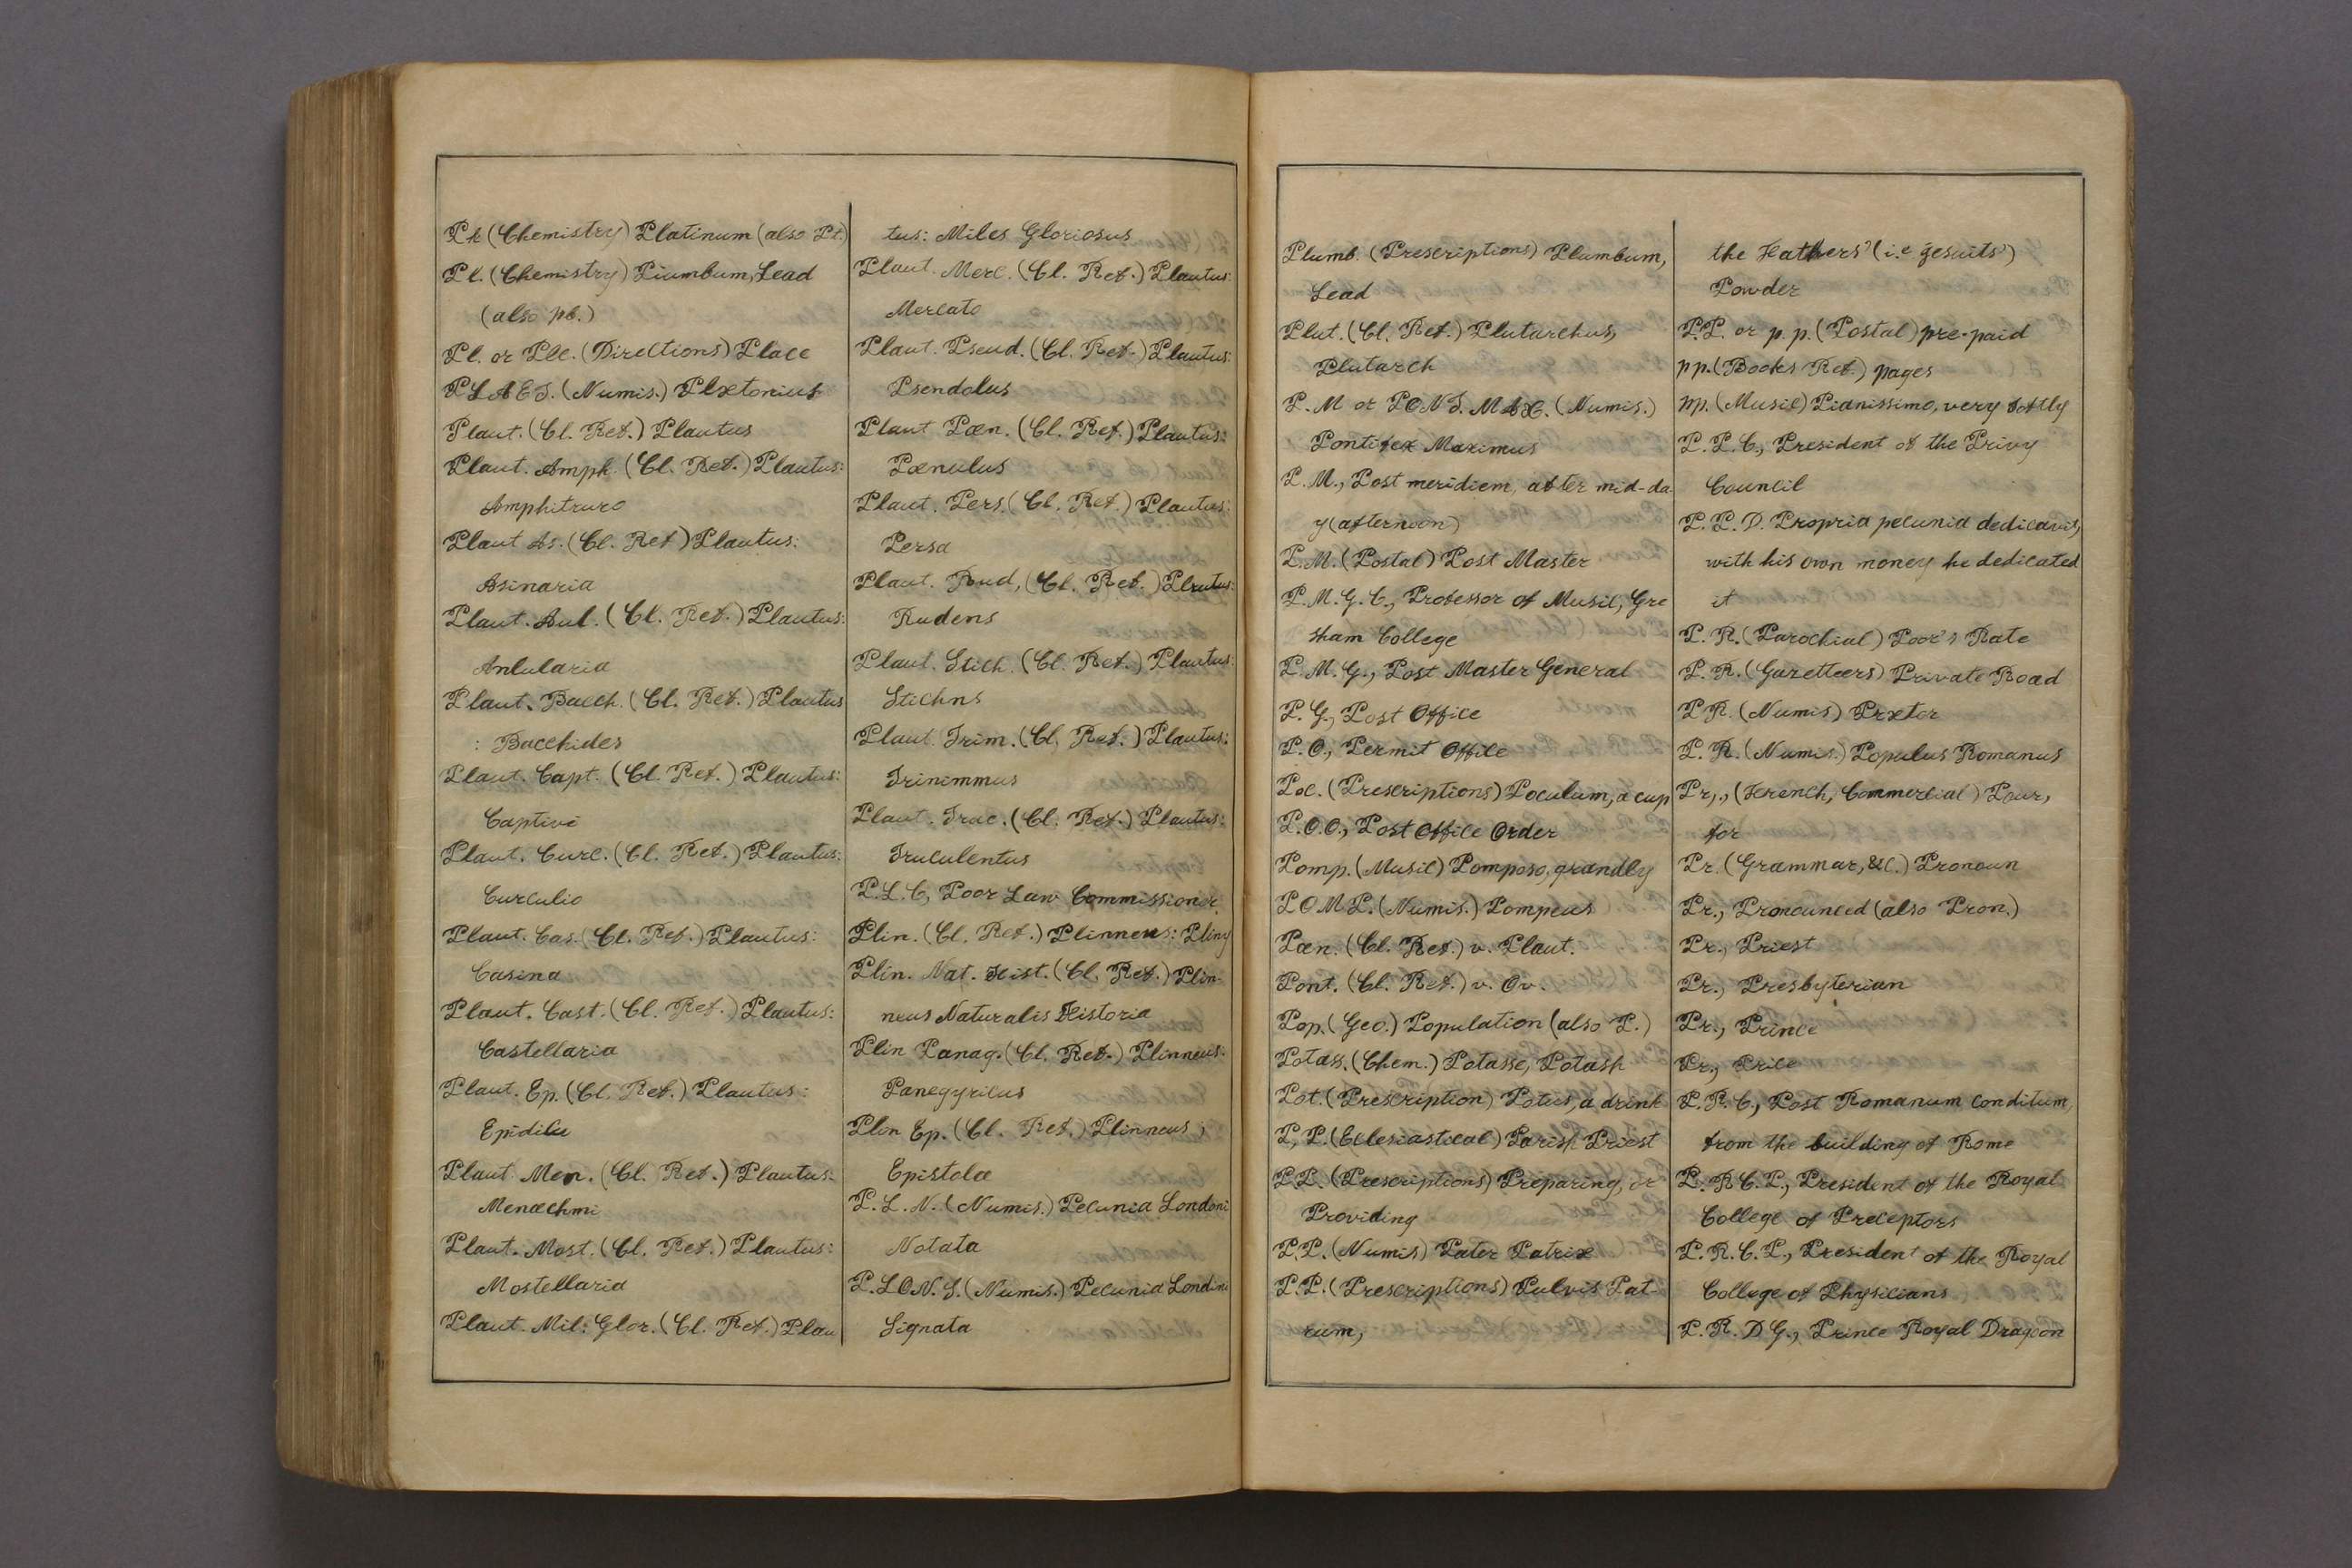 Pl (Chemistry) Platinum (also Pt.)
Pl. (Chemistry) Piumbum, Lead
(also pb.)
Pl. or Plc. (Directions) Place
PLAET. (Numis.) Plætorius
Plaut. (Cl. Ref.) Plautus
Plaut. Amph. (Cl. Ref.) Plautus:
Amphitruro
Plaut As. (Cl. Ref) Plautus:
Asinaria
Plaut. Aul. (Cl. Ref.) Plautus:
Anlularia
Plaut. Bacch. (Cl. Ref.) Plautus
: Bacchides
Plaut. Capt. (Cl. Ref.) Plautus:
Captivi
Plaut. Curc. (Cl. Ref.) Plautus:
Curculio
Plaut. Cas. (Cl. Ref.) Plautus:
Casina
Plaut. Cast. (Cl. Ref.) Plautus:
Castellaria
Plaut. Ep. (Cl. Ref.) Plautus:
Epidicu
Plaut Men. (Cl. Ref.) Plautus:
Menæchmi
Plaut. Most. (Cl. Ref.) Plautus:
Mostellaria
Plaut. Mil: Glor. (Cl. Ref.) Plau
tus: Miles Gloriosus
Plaut. Merc. (Cl. Ref.) Plautus:
Mercato
Plaut. Pseud. (Cl. Ref.) Plautus:
Psendolus
Plaut Pœn. (Cl. Ref.) Plautus:
Pœnulus
Plaut. Pers. (Cl. Ref.) Plautus:
Persa
Plaut. Rud, (Cl. Ref.) Plautus:
Rudens
Plaut. Stich. (Cl. Ref.) Plautus:
Stichns
Plaut. Trim. (Cl. Ref.) Plautus:
Trinimmus
Plaut. Truc. (Cl. Ref.) Plautus:
Truculentus
P.L.C, Poor Law Commissioner.
Plin. (Cl. Ref.) Plinneus: Pliny
Plin. Nat. Hist. (Cl. Ref.) Plin-
neus Naturalis Historia
Plin Panag. (Cl. Ref.) Plinneus:
Panegyricus
Plin Ep. (Cl. Ref.) Plinneus;
Epistolæ
P.L.N. (Numis.) Pecunia Londoni
Notata
P.LON.S. (Numis.) Pecunia Londini
Signata
Plumb. (Prescriptions) Plumbum,
Lead
Plut. (Cl. Ref.) Plutarchus,
Plutarch
P.M or PONT. MAX. (Numis.)
Pontifex Maximus
P.M., Post meridiem, after mid-da
y (afternoon)
P.M. (Postal) Post Master
P.M.G.C., Professor of Music, Gre
sham College
P.M.G., Post Master General
P.G., Post Office
P.O., Permit Office
Poc. (Prescriptions) Poculum, a cup
P.O.O., Post Office Order
Pomp. (Music) Pomposo, grandly
POMP. (Numis.) Pompeus
Pœn. (Cl. Ref.) v. Plaut.
Pont. (Cl. Ref.) v. Ov.
Pop. (Geo.) Population (also P.)
Potass. (Chem.) Potasse, Potash
Pot. (Prescription) Potus, a drink
P, P. (Ecclesiastical) Parish Priest
P.P. (Prescriptions) Preparing, or
Providing
P.P. (Numis) Pater Patriæ
P.P. (Prescriptions) Pulvis Pat-
rum,
the Fathers' (i.e Jesuits')
Powder
P.P. or p.p. (Postal) pre-paid
pp. (Books Ref.) pages
pp. (Music) Pianissimo, very softly
P.P.C., President of the Privy
Council
P.P.D. Propria pecunia dedicavit,
with his own money he dedicated
it
P.R. (Parochial) Poor's Rate
P.R. (Gazetteers) Private Road
PR. (Numis) Prætor
P.R. (Numis.) Populus Romanus
Pr,., (French, Commercial) Pour,
for
Pr. (Grammar, &c.) Pronoun
Pr., Pronounced (also Pron.)
Pr., Priest
Pr., Presbyterian
Pr., Prince
Pr., Price
P.R.C., Post Romanum conditum,
from the building of Rome
P.R.C.P., President of the Royal
College of Preceptors
P.R.C.P., President of the Royal
College of Physicians
P.R.DG., Prince Royal Dragoon